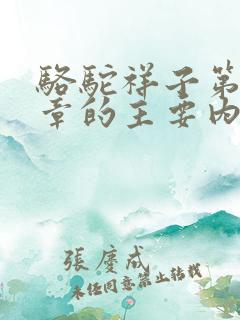 駱駝祥子第
章的主要內
張慶成
未經同意禁止轉載